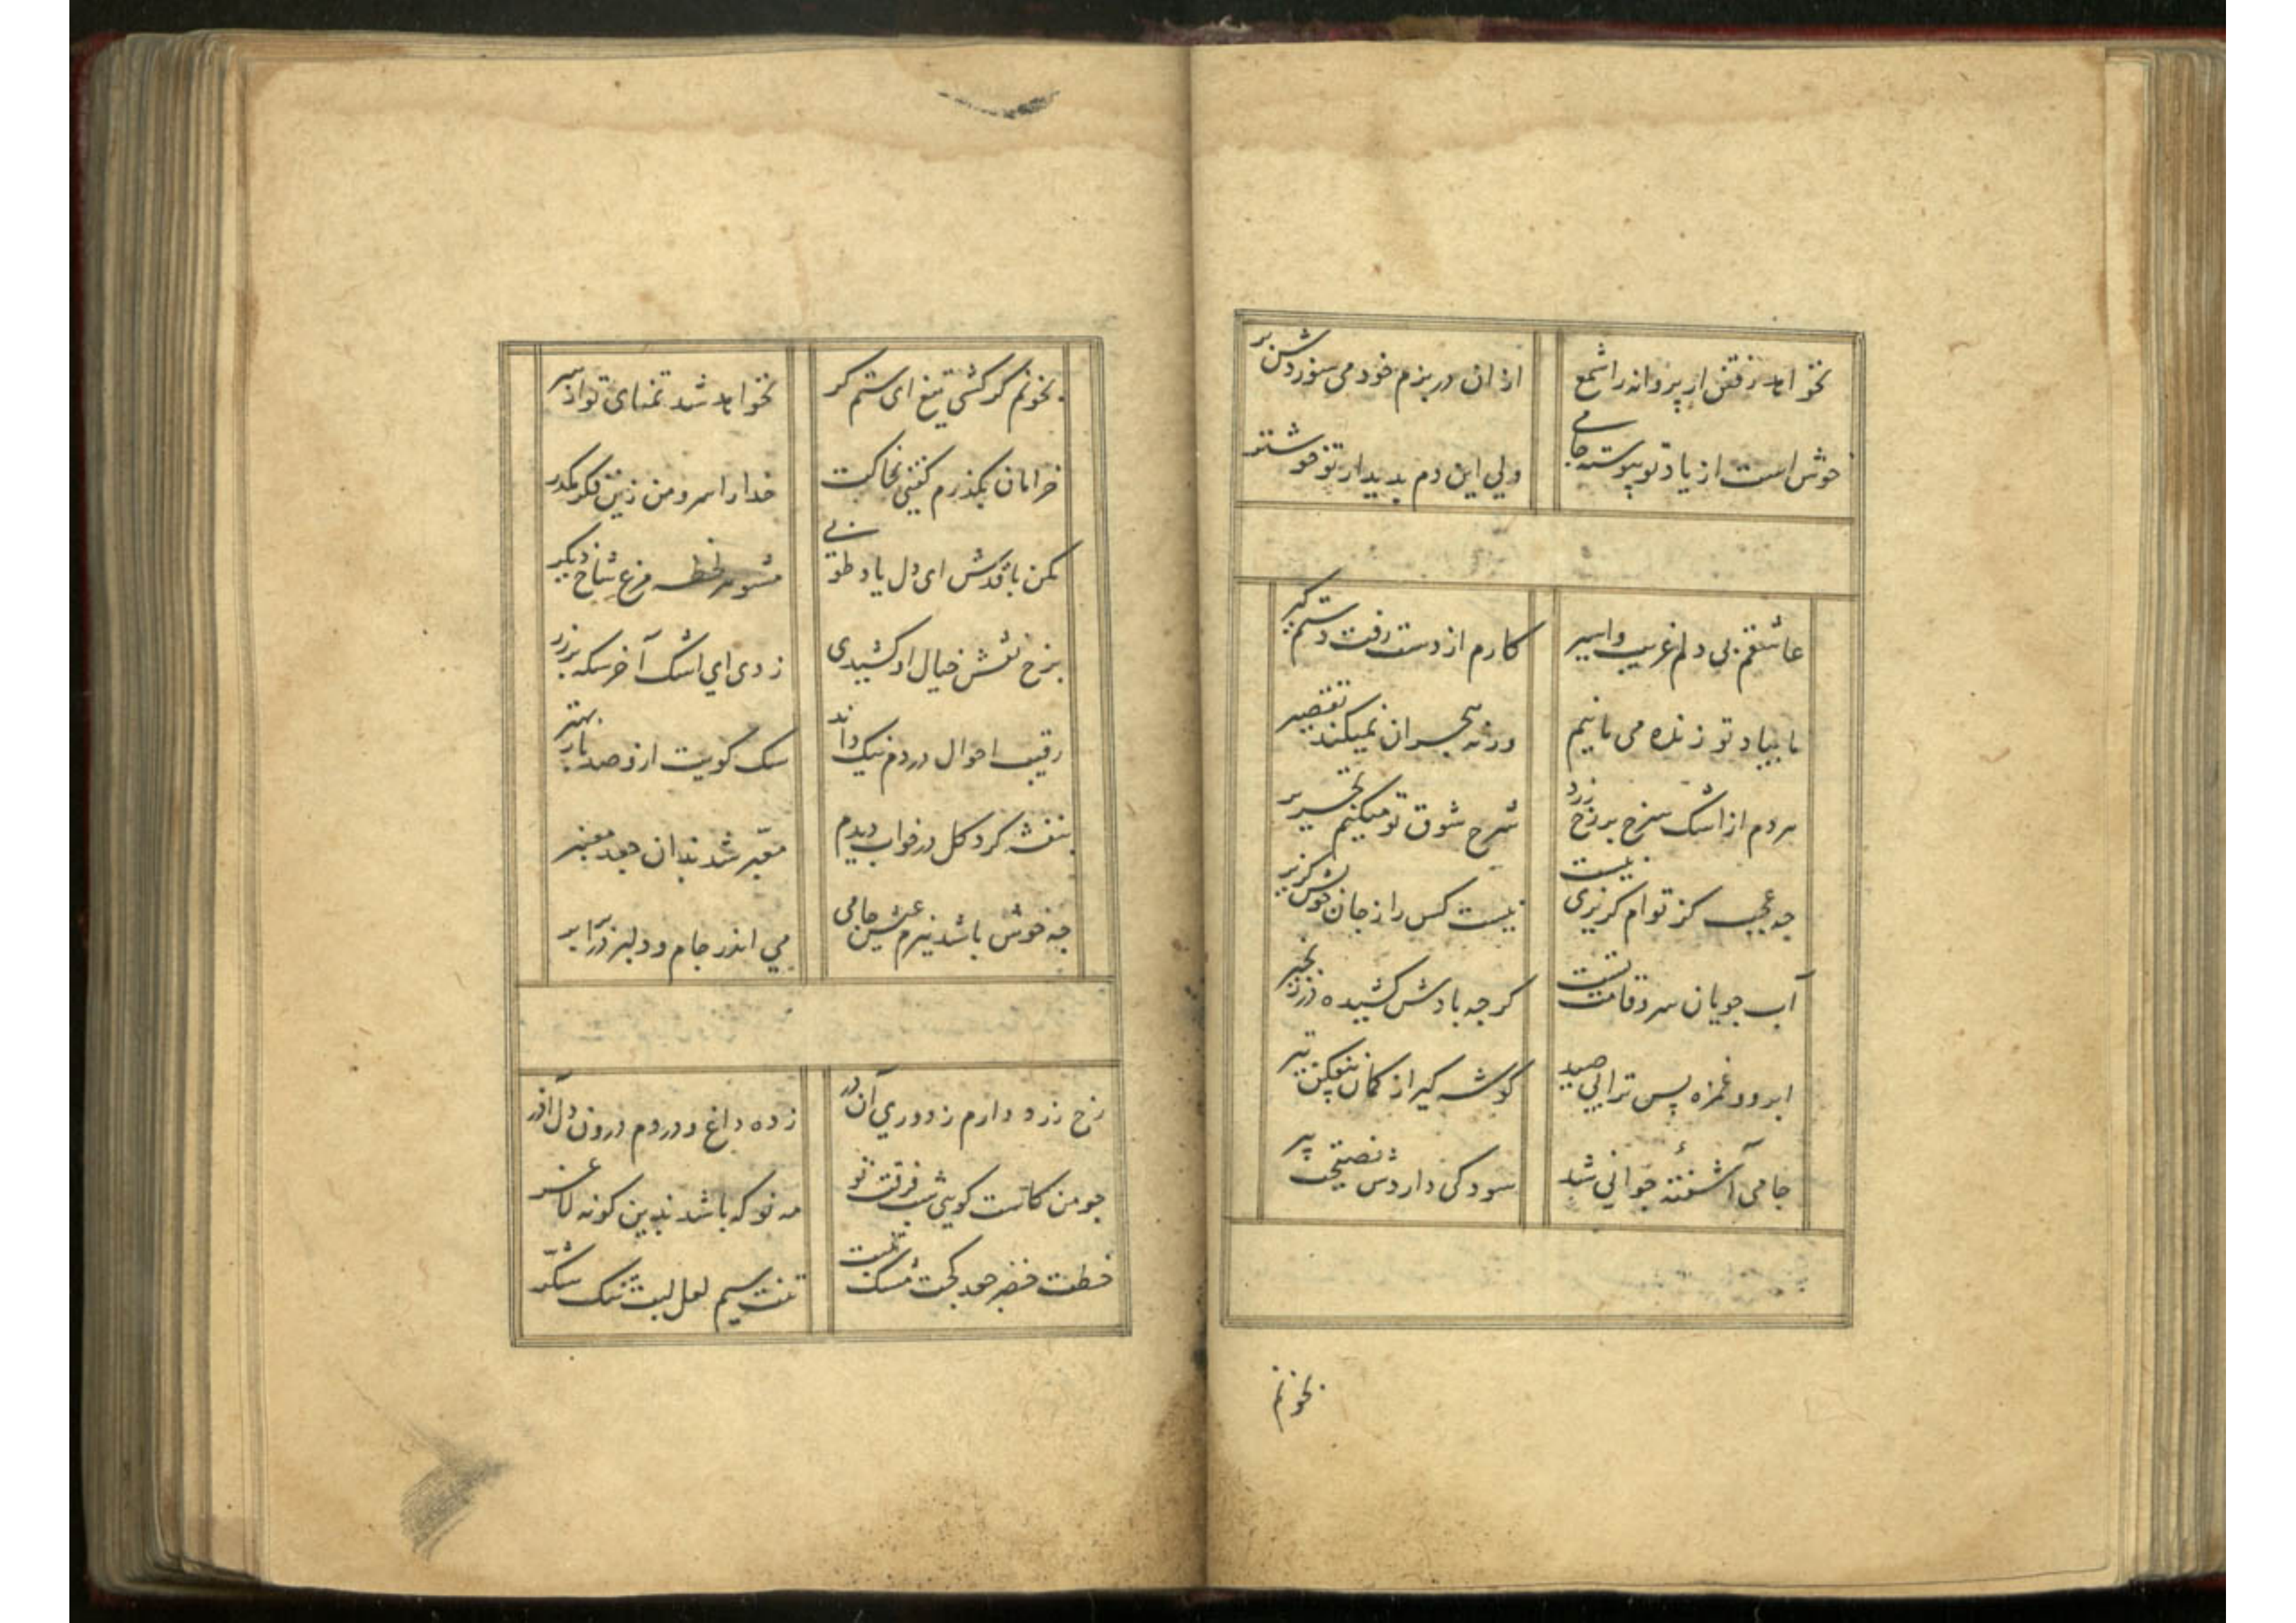 نخواهد رفتن از پروانه را شمع
از آن در بزم خود می سوزدش پر
خوش است از یاد تو پیوسته جامی
ولی این دم بدیدار تو خوشتر
عاشقم بی دلم غریب و اسیر
کارم از دست رفت دستم گیر
ما بیاد تو زنده می مانیم
ورنه هجران نمیکند تقصیر
مردم از اشک سرخ بر رخ زرد
شرح شوق تو میکنم تحریر
چه عجب کز توام گزیری نیست
نیست کس را ز جان خویش گزیر
آب جویان سرو قامت تست
گرچه بادش کشیده در زنجیر
ابرو و غمزه بس ترا پی صید
گوشه گیر از کمان بیفکن تیر
جامی آشفتهٔ جوانی شد
سود کی داردش نصیحت پیر
بخونم
بخونم گر کشی تیغ ای ستم گر
نخواهد شد تمنای تو از سر
خرامان بگذرم گفتی بخاکت
خدا را سرو من زین فکر مگذر
مکن با قدش ای دل یاد طوبی
مشو هر لحظه مرغ شاخ دیگر
برخ نقش خیال او کشیدی
زدی ای اشک آخر سکه بر زر
رقیب احوال دردم نیک داند
سگ کویت ازو صد بار بهتر
بنفشه گرد گل در خواب دیدم
معبر شد بدان جعد معنبر
چه خوش باشد بزم عیش جامی
می اندر جام و دلبر در برابر
رخ زرد دارم ز دوری آن در
زده داغ و دردم درون دل آذر
چو من کاست گویی شب فرقت تو
مه نو که باشد بدین گونه لاغر
خطت خضر جعد کجت مشک تبت
تنت سیم لعل لبت تنگ شکر